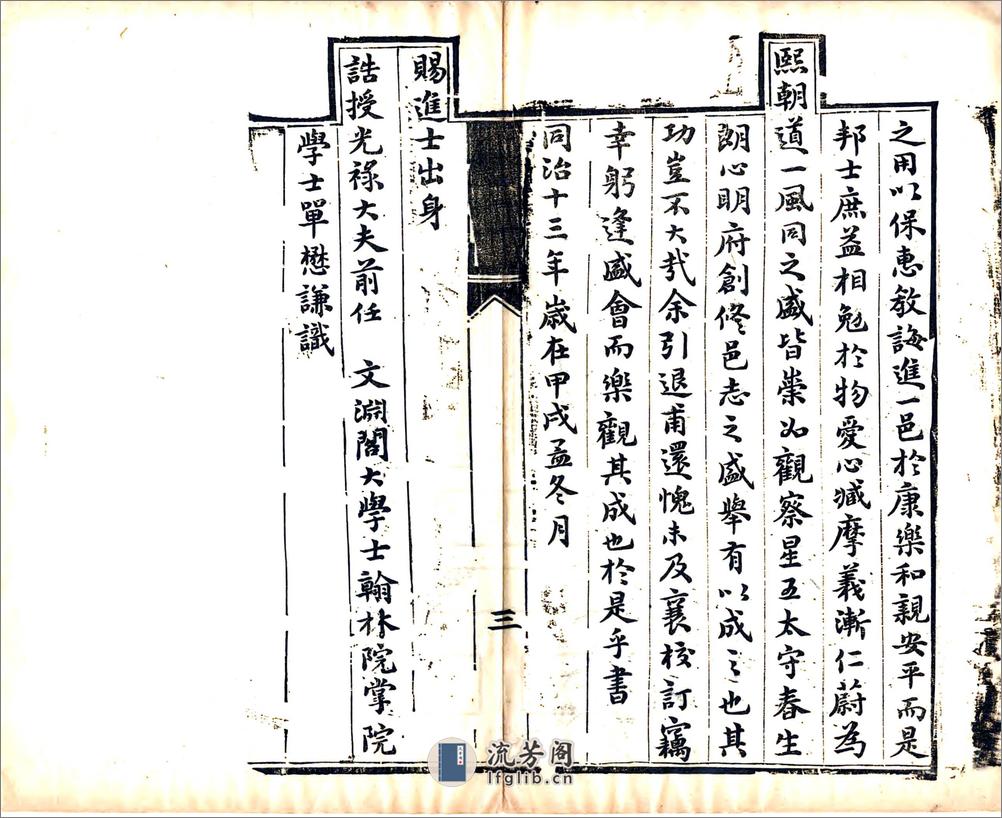 之用以保惠教誨進一邑於康樂和親安平而是
邦士庶益相勉於物愛心臧摩義漸仁蔚為
熙朝道一風同之盛皆崇如觀察星五太守春生
朗心明府創修邑志之盛舉有以成之也其
功豈不大哉余引退甫還愧未及襄校訂竊
幸躬逢盛會而樂觀其成也於是乎書
同治十三年歲在甲戌孟冬月
三
賜進士出身
誥授光祿大夫前任 文淵閣大學士翰林院掌院
學士單懋謙識
流芳阁
lfglib.cn